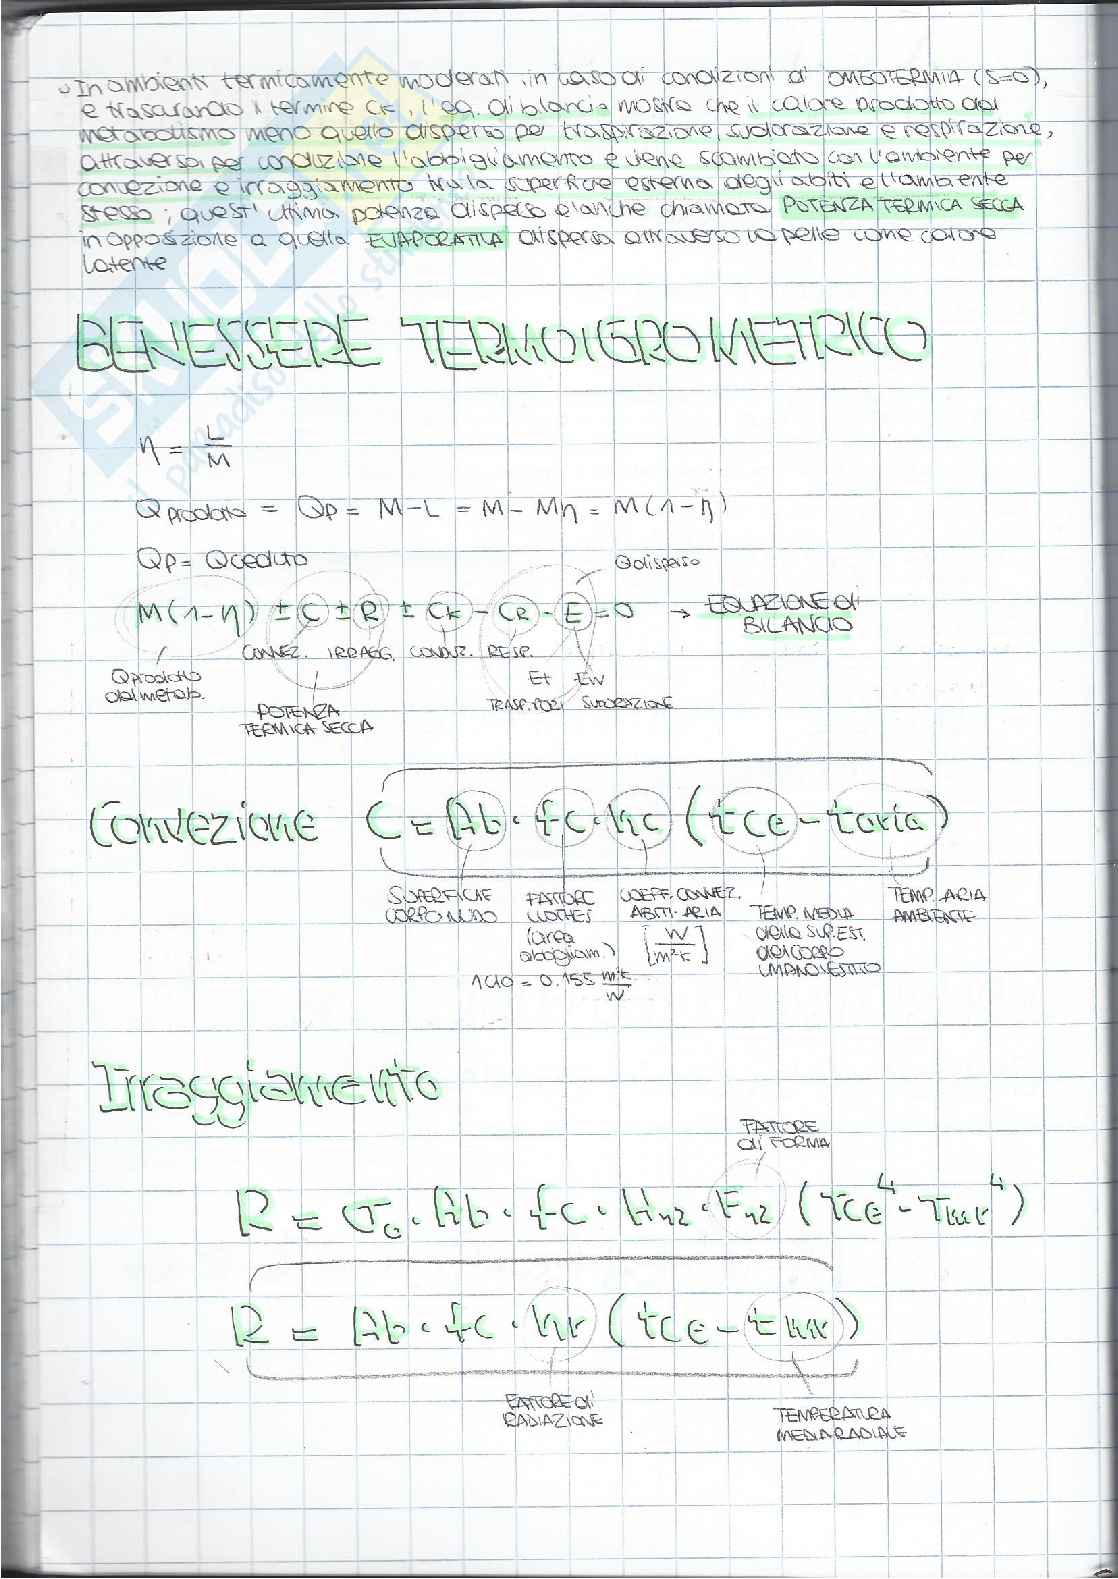 In ambienti termicamente moderati, in caso di condizioni di OMEOTERMIA (S=0),
e trascurando il termine CK, l'eq. di bilancio mostra che il calore prodotto dal
metabolismo meno quello disperso per traspirazione, sudorazione e respirazione,
attraversa per conduzione l'abbigliamento e viene scambiato con l'ambiente per
convezione e irraggiamento tra la superficie esterna degli abiti e l'ambiente
stesso; quest'ultima potenza dispersa è anche chiamata POTENZA TERMICA SECCA
in opposizione a quella EVAPORATIVA dispersa attraverso la pelle come calore
latente
BENESSERE TERMOIGROMETRICO
η = L/M
Q prodotto = Qp = M-L = M - Mη = M(1-η)
Qp = Qceduto
Qdisperso
M(1-η) ± C ± R ± CK - CR - E = 0 → EQUAZIONE di
BILANCIO
CONVEZ. IRRAGG. CONDUZ. RESP.
Qprodotto
dal metab.
Et Ew
TRASP. SUDORAZIONE
POTENZA
TERMICA SECCA
Convezione C = Ab · fc · hc (tce - taria)
SUPERFICIE
CORPO NUDO
FATTORE
CLOTHES
(area
abbigliam.)
COEFF. CONVEZ.
ABITI-ARIA
[W/m²K]
TEMP. MEDIA
della SUP. EST.
del CORPO
UMANO VESTITO
TEMP. ARIA
AMBIENTE
1 clo = 0.155 m²K/W
Irraggiamento
FATTORE
di FORMA
R = σ₀ · Ab · fc · · F₁₂ (Tce⁴ - Tmr⁴)
R = Ab · fc · hr (tce - tmr)
FATTORE di
RADIAZIONE
TEMPERATURA
MEDIA RADIALE